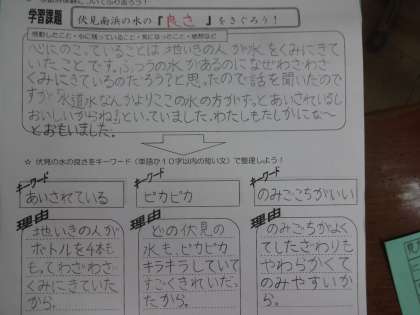 学習課題 伏見南浜の水の『良さ』をさぐろう!
感動したこと・心に残っていること・気になったこと・感想など
心にのこっていることは地いきの人が水をくみにきて
いたことです。ふつうの水があるのになぜわざわざ
くみにきているのだろう?と思ったので話を聞いたので
すが「水道水なんかよりここの水の方がずっとあいされているし
おいしいからね!」といっていました。わたしもたしかにな〜
とおもいました。
☆ 伏見の水の良さをキーワード(単語か10字以内の短い文)で整理しよう!
キーワード
あいされている
キーワード
ピカピカ
キーワード
のみごこちがいい
理由
地いきの人が
ボトルを4本も
もってわざわざ
くみにきていた
から。
理由
どの伏見の
水も、ピカピカ
キラキラしていて
すごくきれいだっ
たから。
理由
のみごこちがよく
てしたざわりも
やわらかくて
のみやすいか
ら。